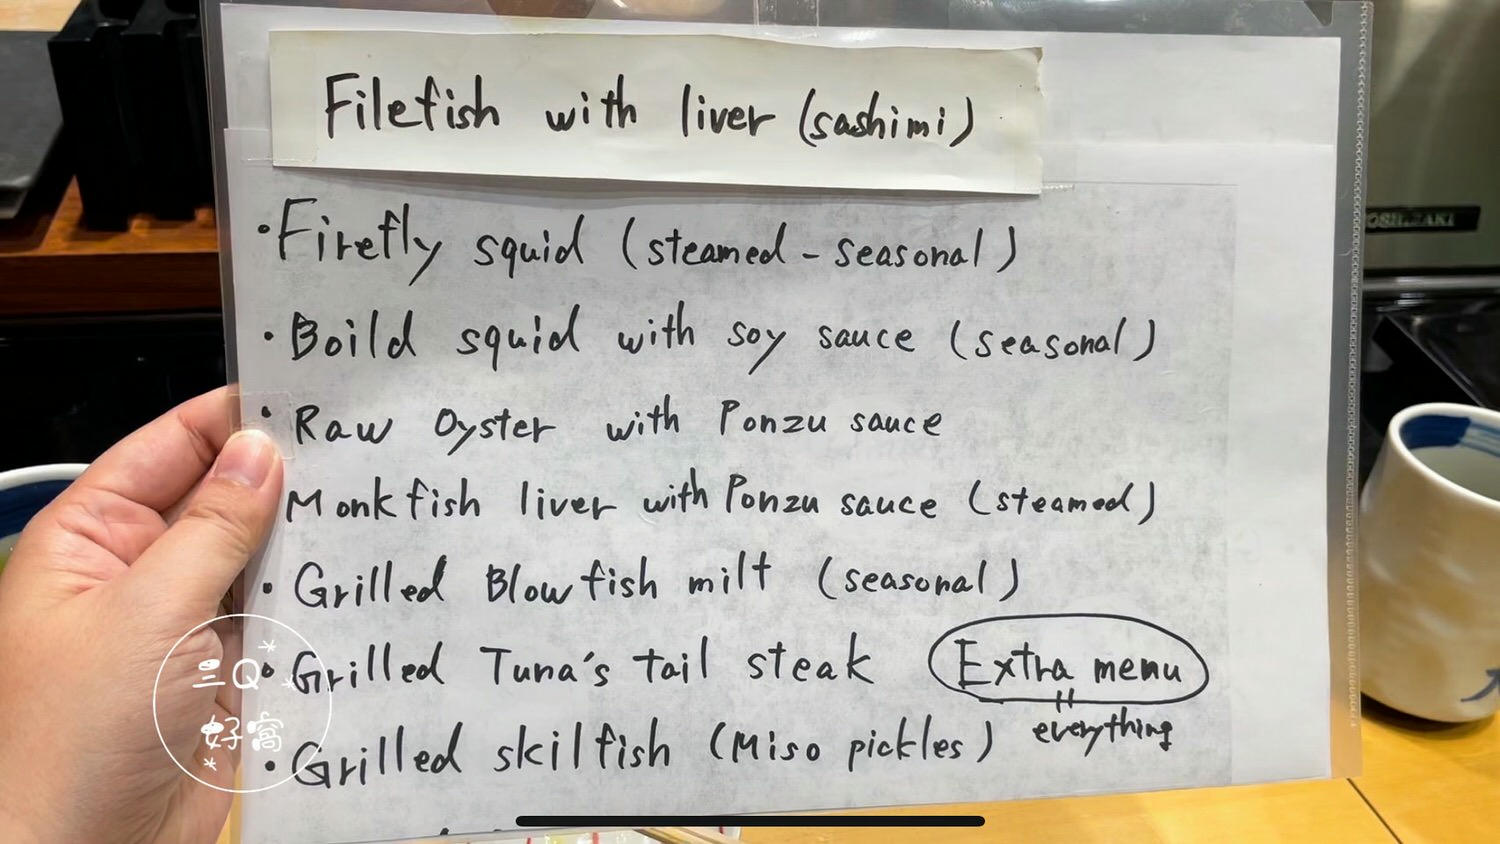 Filefish with liver (sashimi)
・Firefly squid (steamed - seasonal)
・Boild squid with soy sauce (seasonal)
・Raw Oyster with Ponzu sauce
Monkfish liver with Ponzu sauce (steamed)
・Grilled Blowfish milt (seasonal)
・Grilled Tuna's tail steak
Extra menu
everything
・Grilled skilfish (Miso pickles)
OSHIZAKI
三Q
好窩